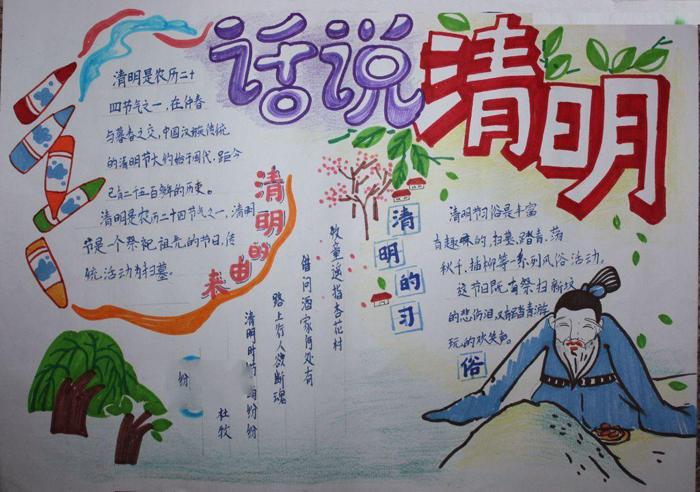 话说清明
清明是农历二十
四节气之一，在仲春
与暮春之交，中国汉族传统
的清明节大约始于周代，距今
已有二千五百多年的历史。
清明是农历二十四节气之一，清明
节是一个祭祀祖先的节日，传
统活动为扫墓。
清明的由来
杜牧
清明时节雨份份
份
路上行人欲断魂
借问酒家何处有
牧童遥指杏花村
清明的习俗
清明节习俗是丰富
有趣味的，扫墓，踏青、荡
秋千、插柳等一系列风俗活动。
这节日既有祭扫新坟
的悲伤泪，又有踏青游
玩的欢笑声。